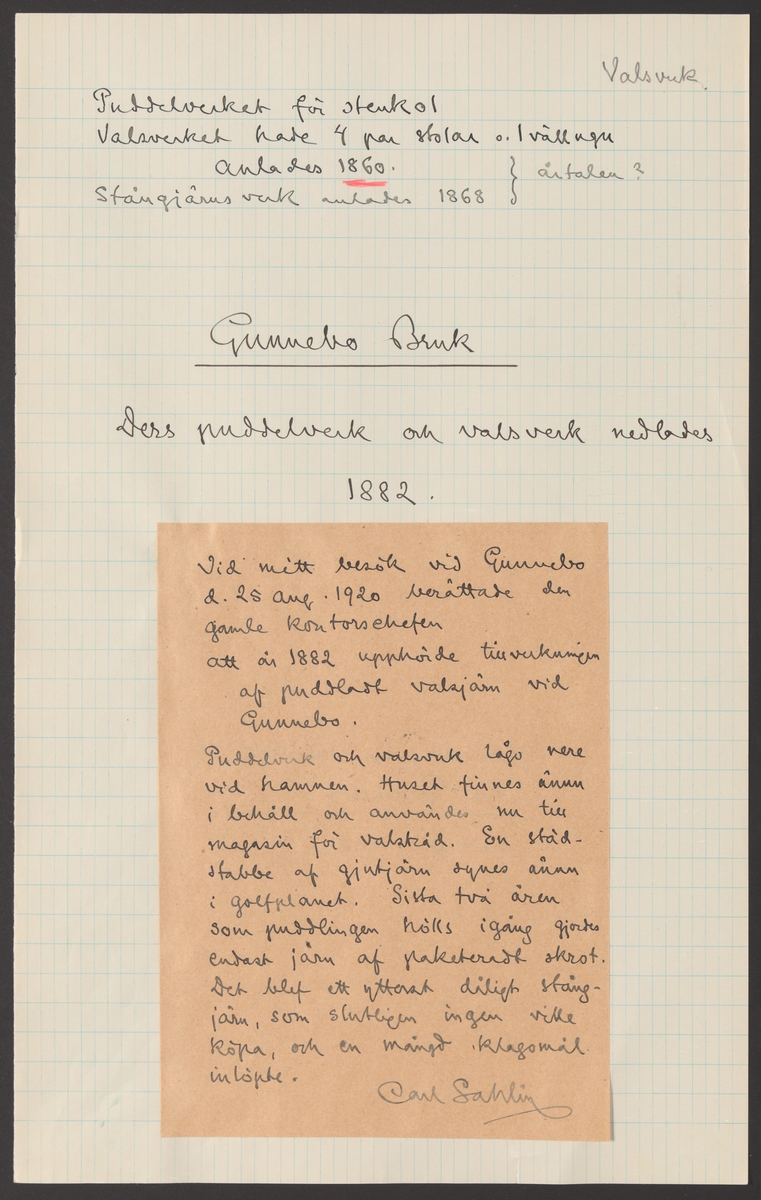 Valsverk.
Puddelverket för stenkol
Valsverket hade 4 par stolar o. 1 vällugn
anlades 1860. } årtalen?
Stångjärnsverk anlades 1868
Gunnebo Bruk
Dess puddelverk och valsverk nedlades
1882.
Vid mitt besök vid Gunnebo
d. 25 aug. 1920 berättade den
gamle kontorschefen
att år 1882 upphörde tillverkningen
af puddladt valsjärn vid
Gunnebo.
Puddelverk och valsverk lågo nere
vid hamnen. Huset finnes ännu
i behåll och användes nu till
magasin för valstråd. En städ-
stabbe af gjutjärn synes ännu
i golfplanet. Sista två åren
som puddlingen hölls igång gjordes
endast järn af paketeradt skrot.
Det blef ett ytterst dåligt stång-
järn, som slutligen ingen ville
köpa, och en mängd klagomål
inlöpte.
Carl Sahlin